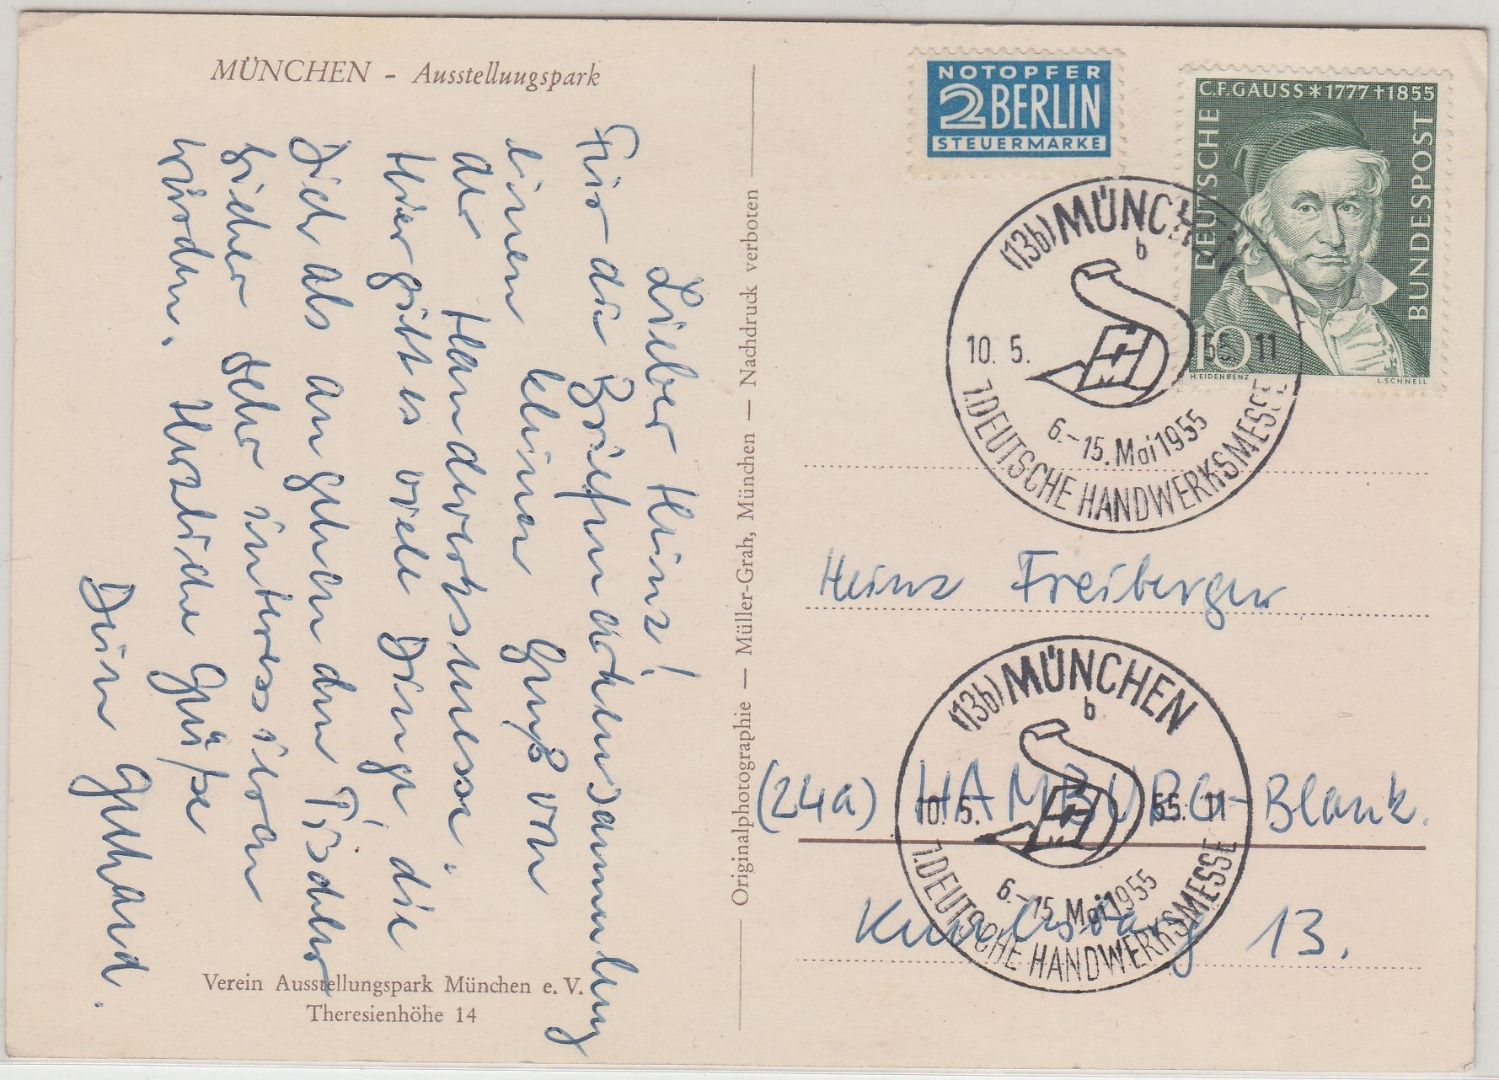 MÜNCHEN - Ausstelluugspark
Lieber Heinz!
Für die Briefmarkensammlung
einen kleinen Gruß von
der Handwerksmesse.
Hier gibt es viele Dinge, die
Dich als angehenden Tischler
sicher sehr interessieren
würden. Herzliche Grüße
Dein Gebhard.
Verein Ausstellungspark München e. V.
Theresienhöhe 14
Originalphotographie — Müller-Grah, München — Nachdruck verboten
NOTOPFER
2 BERLIN
STEUERMARKE
C.F.GAUSS * 1777 † 1855
DEUTSCHE
BUNDESPOST
10
H.EIDENBENZ
L.SCHNELL
(13b) MÜNCHEN
b
10. 5. 55. 11
6.-15. Mai 1955
7. DEUTSCHE HANDWERKSMESSE
Heinz Freiberger
(13b) MÜNCHEN
b
(24a) HAMBURG-Blank.
10. 5. 55. 11
6.-15. Mai 1955
7. DEUTSCHE HANDWERKSMESSE
13.